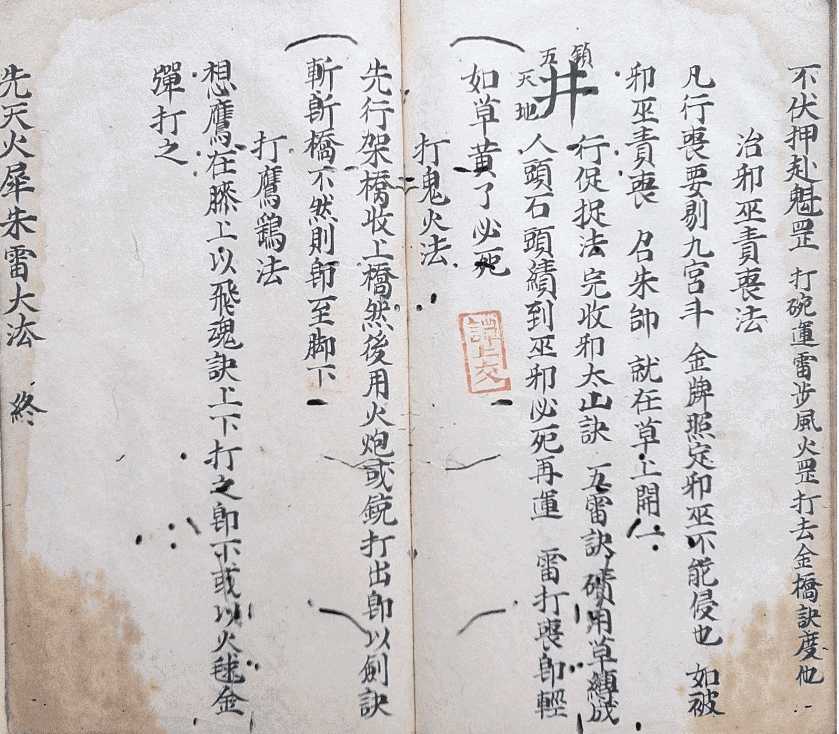 不伏押赴魁罡 打碗運雷步風火罡打去金橋訣度他
治邪巫責喪法
凡行喪要剔九宮斗 金牌照定邪巫不能侵也 如被
邪巫責喪 召朱帥 就在草上開一
鎖
五井
天地
行促捉法完收邪太山訣 五雷訣磧用草縛成
人頭石頭績到巫邪必死再運 雷打喪即輕
如草黃了必死
譚上交
打鬼火法
先行架橋收上橋然後用火炮或銃打出即以劍訣
斬斫橋不然則即至脚下
打鷹鷄法
想鷹在膝上以飛魂訣上下打之即下或以火毬金
彈打之
先天火犀朱雷大法 終